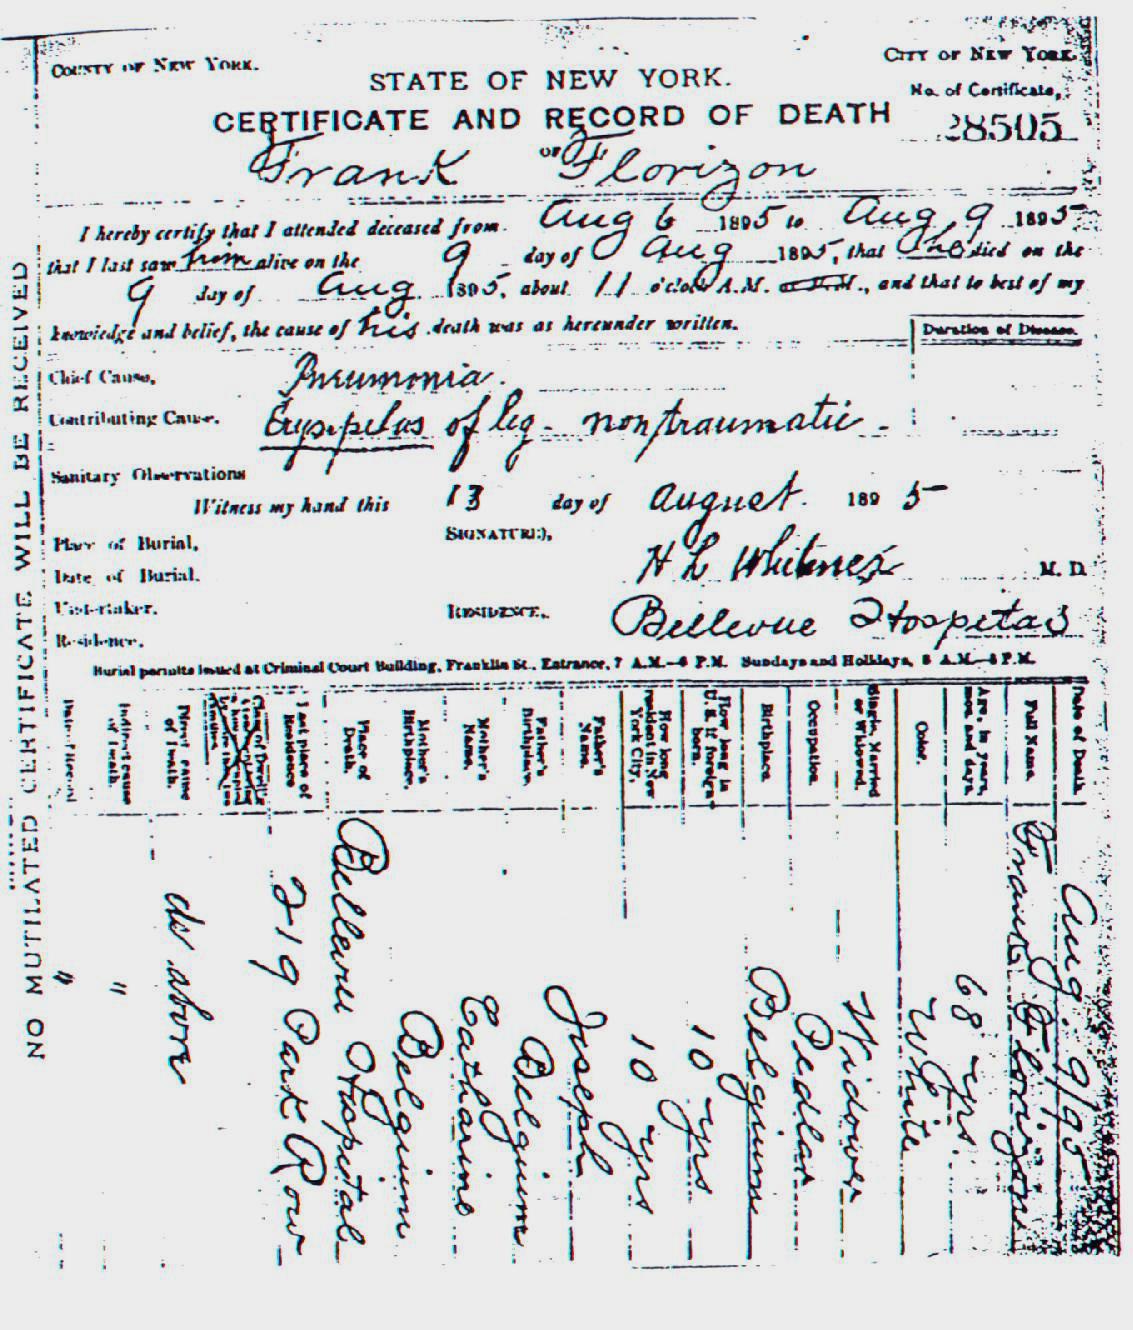 COUNTY OF NEW YORK.
CITY OF NEW YORK.
STATE OF NEW YORK.
No. of Certificate,
CERTIFICATE AND RECORD OF DEATH
28505
OF
Frank Florizon
I hereby certify that I attended deceased from Aug 6 1895 to Aug 9 1895
that I last saw him alive on the 9 day of Aug 1895, that he died on the
9 day of Aug 1895, about 11 o'clock A.M. or P.M., and that to best of my
knowledge and belief, the cause of his death was as hereunder written.
Duration of Disease.
Chief Cause, Pneumonia.
Contributing Cause. Erysipelas of leg - non traumatic -
Sanitary Observations
Witness my hand this 13 day of August 1895
Place of Burial, SIGNATURE,
Date of Burial. H L M. D.
Undertaker. RESIDENCE, Bellevue Hospital
Residence.
Burial permits issued at Criminal Court Building, Franklin St., Entrance, 7 A.M.–6 P.M. Sundays and Holidays, 8 A.M.–5 P.M.
NO MUTILATED CERTIFICATE WILL BE RECEIVED
Date of Death. Aug. 9/95
Full Name. Frank Florizon
Age, in years, mos. and days. 68 yrs.
Color. White
Single, Married or Widowed. Widower
Occupation. Pedlar
Birthplace. Belgium
How long in U. S. if foreign born. 10 yrs
How long resident in New York City. 10 yrs
Father's Name. Joseph
Father's Birthplace. Belgium
Mother's Name. Catharine
Mother's Birthplace. Belgium
Place of Death. Bellevue Hospital
Last place of Residence 219 Park Row
Direct cause of Death. as above
Indirect cause of Death. "
Date of Record "